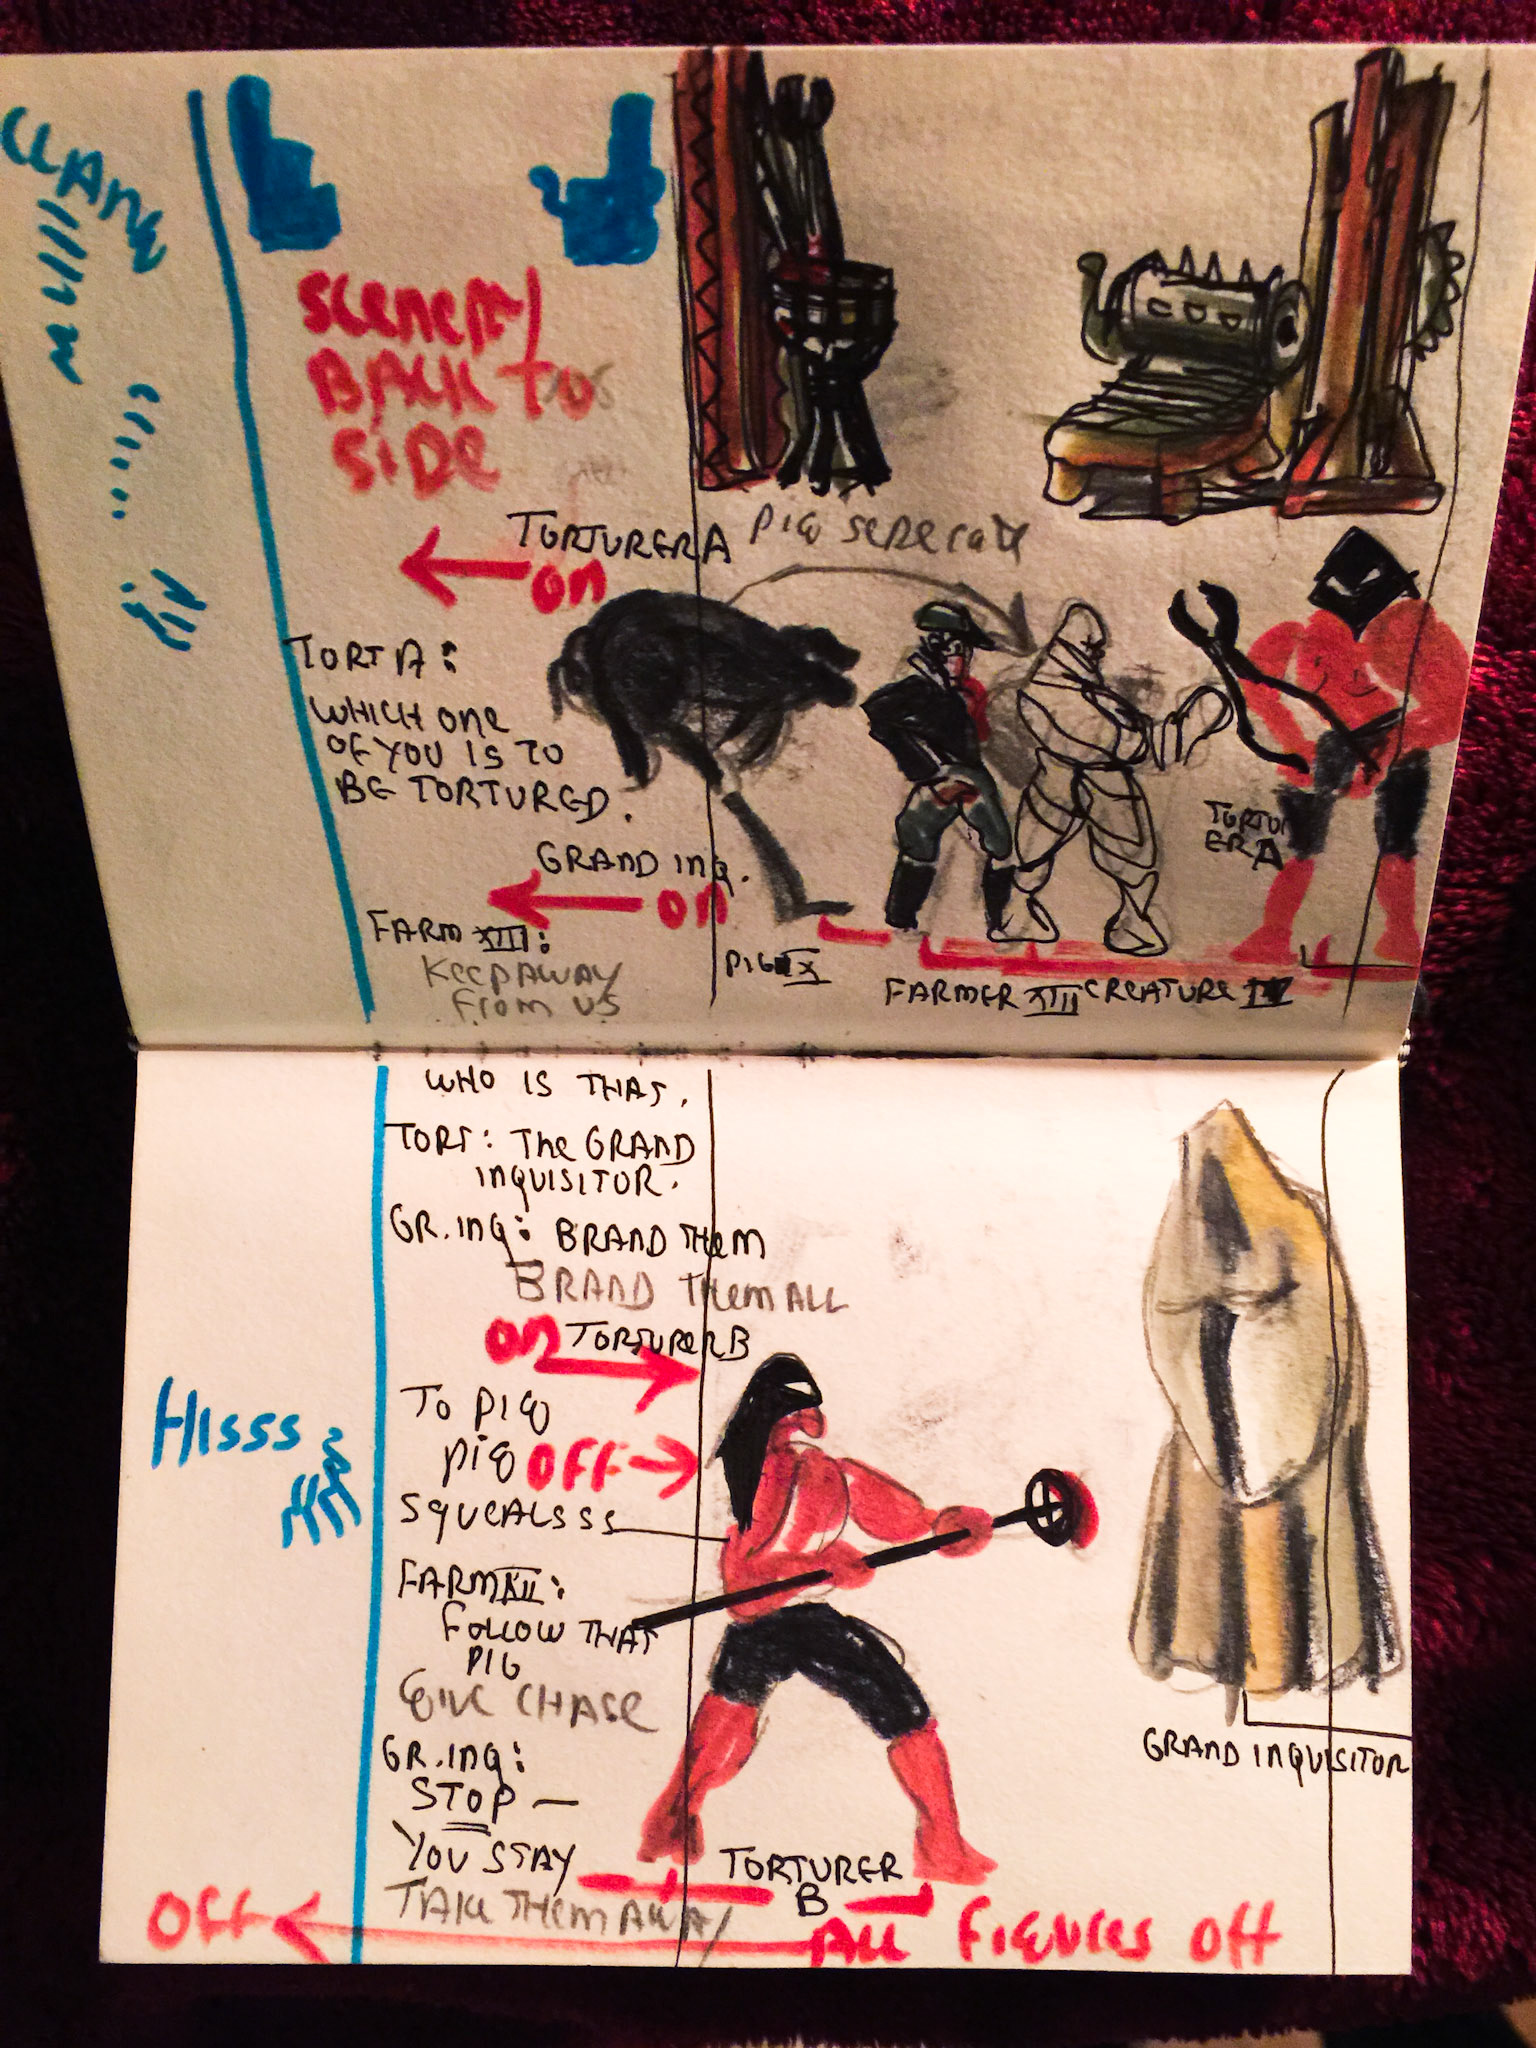 CLANK
SCENERY
BACK TO
SIDE
TORTURER A
ON
PIG SEPERATE
TORT A:
WHICH ONE
OF YOU IS TO
BE TORTURED.
GRAND INQ.
ON
FARM XIII:
KEEP AWAY
FROM US
PIG IX
FARMER XIII
CREATURE
TORTUR
ER A
WHO IS THAT.
TORT: THE GRAND
INQUISITOR.
GR. INQ: BRAND THEM
BRAND THEM ALL
ON TORTURER B
HISSS
TO PIG
PIG OFF
SQUEALSSS
FARM XIII:
FOLLOW THAT
PIG
GIVE CHASE
GR. INQ:
STOP —
YOU STAY
TAKE THEM AWAY
GRAND INQUISITOR
TORTURER
B
OFF
ALL FIGURES OFF